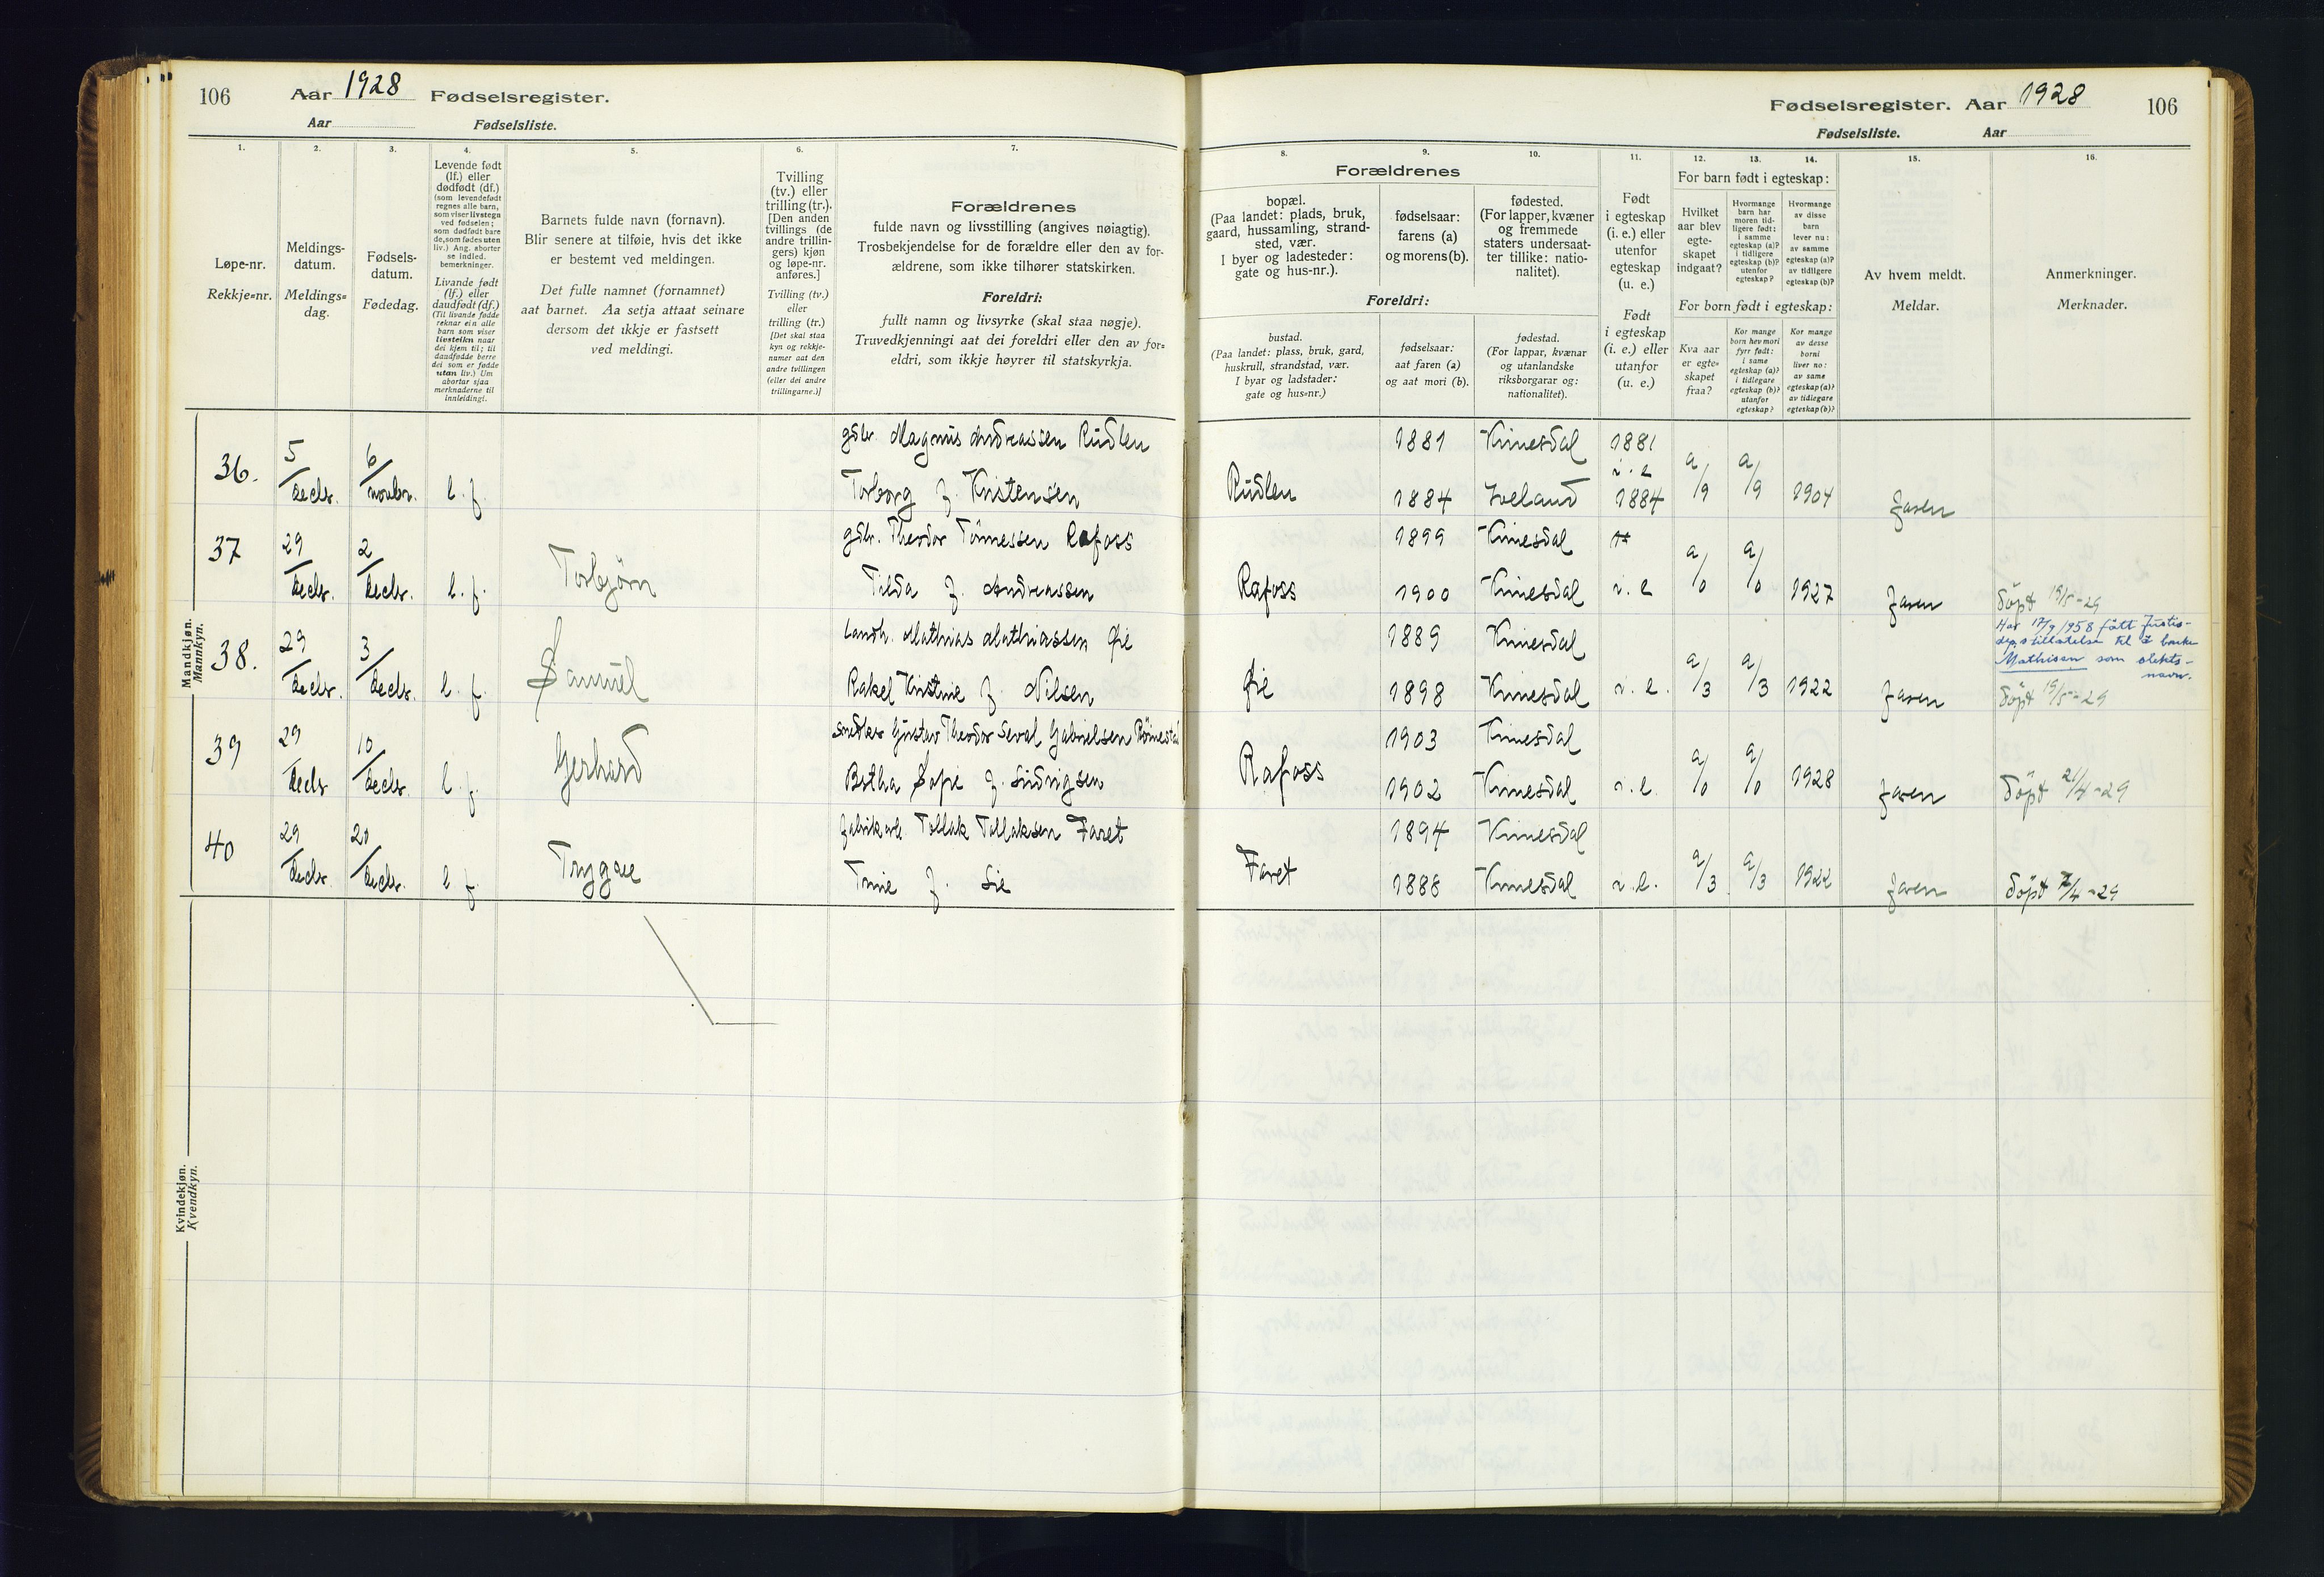 106 Aar 1928 Fødselsregister.
Aar Fødselsliste.
1. 2. 3. 4. 5. 6. 7.
Løpe-nr.
Rekkje=nr.
Meldings-
datum.
Meldings=
dag.
Fødsels-
datum.
Fødedag.
Levende født
(lf.) eller
dødfødt (df.)
(som levendefødt
regnes alle barn,
som viser livstegn
ved fødselen;
som dødfødt bare
de, som fødes uten
liv.) Ang. aborter
se indled.
bemerkninger.
Livande født
(lf.) eller
daudfødt (df.)
(Til livande fødde
reknar ein alle
barn som viser
livsteikn naar
dei kjem til; til
daudfødde berre
dei som er fødde
utan liv.) Um
abortar sjaa
merknaderne til
innleidingi.
Barnets fulde navn (fornavn).
Blir senere at tilføie, hvis det ikke
er bestemt ved meldingen.
Det fulle namnet (fornamnet)
aat barnet. Aa setja attaat seinare
dersom det ikkje er fastsett
ved meldingi.
Tvilling
(tv.) eller
trilling (tr.).
[Den anden
tvillings (de
andre trillin-
gers) kjøn
og løpe-nr.
anføres.]
Tvilling (tv.)
eller
trilling (tr.)
[Det skal staa
kyn og rekkje-
numer aat den
andre tvillingen
(eller dei andre
trillingarne.)]
Forældrenes
fulde navn og livsstilling (angives nøiagtig).
Trosbekjendelse for de forældre eller den av for-
ældrene, som ikke tilhører statskirken.
Foreldri:
fullt namn og livsyrke (skal staa nøgje).
Truvedkjenningi aat dei foreldri eller den av for=
eldri, som ikkje høyrer til statskyrkja.
Mandkjøn.
Mannkyn.
gdbr. Magnus Andreassen Rudlen
36. 5/decbr. 6/novbr. l. f. Torborg f. Kristensen
gdbr. Theodor Tönnessen Rafoss
37 29/decbr. 2/decbr. l. f. Torbjörn Tilda f. Andreassen
landh. Mathias Mathiassen Øie
38. 29/decbr. 3/decbr. l. f. Samuel Rakel Kristine f. Nilsen
Gustav Theodor Seval Gabrielsen Römestad
39 29/decbr 10/decbr. l. f. Gerhard Bertha Sofie f. Ludvigsen
fabrikarb. Tollak Tollaksen Faret
40 29/decbr. 20/decbr. l f. Trygve Trine f. Lie
Kvindekjøn.
Kvendkyn.
Fødselsregister. Aar 1928 106
Fødselsliste. Aar
8. 9. 10. 11. 12. 13. 14. 15. 16.
Forældrenes
bopæl.
(Paa landet: plads, bruk,
gaard, hussamling, strand-
sted, vær.
I byer og ladesteder:
gate og hus-nr.).
fødselsaar:
farens (a)
og morens (b).
fødested.
(For lapper, kvæner
og fremmede
staters undersaat-
ter tillike: natio-
nalitet).
Foreldri:
bustad.
(Paa landet: plass, bruk, gard,
huskrull, strandstad, vær.
I byar og ladstader:
gate og hus=nr.)
fødselsaar:
aat faren (a)
og aat mori (b).
fødestad.
(For lappar, kvænar
og utanlandske
riksborgarar og:
nationalitet).
Født
i egteskap
(i. e.) eller
utenfor
egteskap
(u. e.)
Født
i egteskap
(i. e.) eller
utanfor
(u. e.)
For barn født i egteskap:
Hvilket
aar blev
egte-
skapet
indgaat?
Hvormange
barn har
moren tid-
ligere født:
i samme
egteskap (a)?
i tidligere
egteskap (b)?
utenfor
egteskap?
Hvormange
av disse
barn
lever nu:
av samme
egteskap (a)?
av tidligere
egteskap (b)?
For born født i egteskap:
Kva aar
er egte-
skapet
fraa?
Kor mange
born hev mori
fyrr født:
i same
egteskap (a)?
i tidlegare
egteskap (b)?
utanfor
egteskap?
Kor mange
av desse
borni
liver no:
av same
egteskap (a)?
av tidlegare
egteskap (b)?
Av hvem meldt.
Meldar.
Anmerkninger.
Merknader.
1881 Kvinesdal 1881
i. e
Rudlen 1884 Iveland 1884 a/9 a/9 1904 Faren
1899 Kvinesdal
Rafoss 1900 Kvinesdal i. e a/0 a/0 1927 Faren döpt 19/5-29
1889 Kvinesdal
Har 17/9 1958 fått Justis-
dep.s tillatelse til å bruke
Mathisen som slekts-
navn.
Øie 1898 Kvinesdal i. e. a/3 a/3 1922 Faren döpt 19/5-29
1903 Kvinesdal
Rafoss 1902 Kvinesdal i. e. a/0 a/0 1928 Faren döpt 21/4-29
1894 Kvinesdal
Faret 1888 Kvinesdal i. e. a/3 a/3 1922 Faren döpt 7/4-29